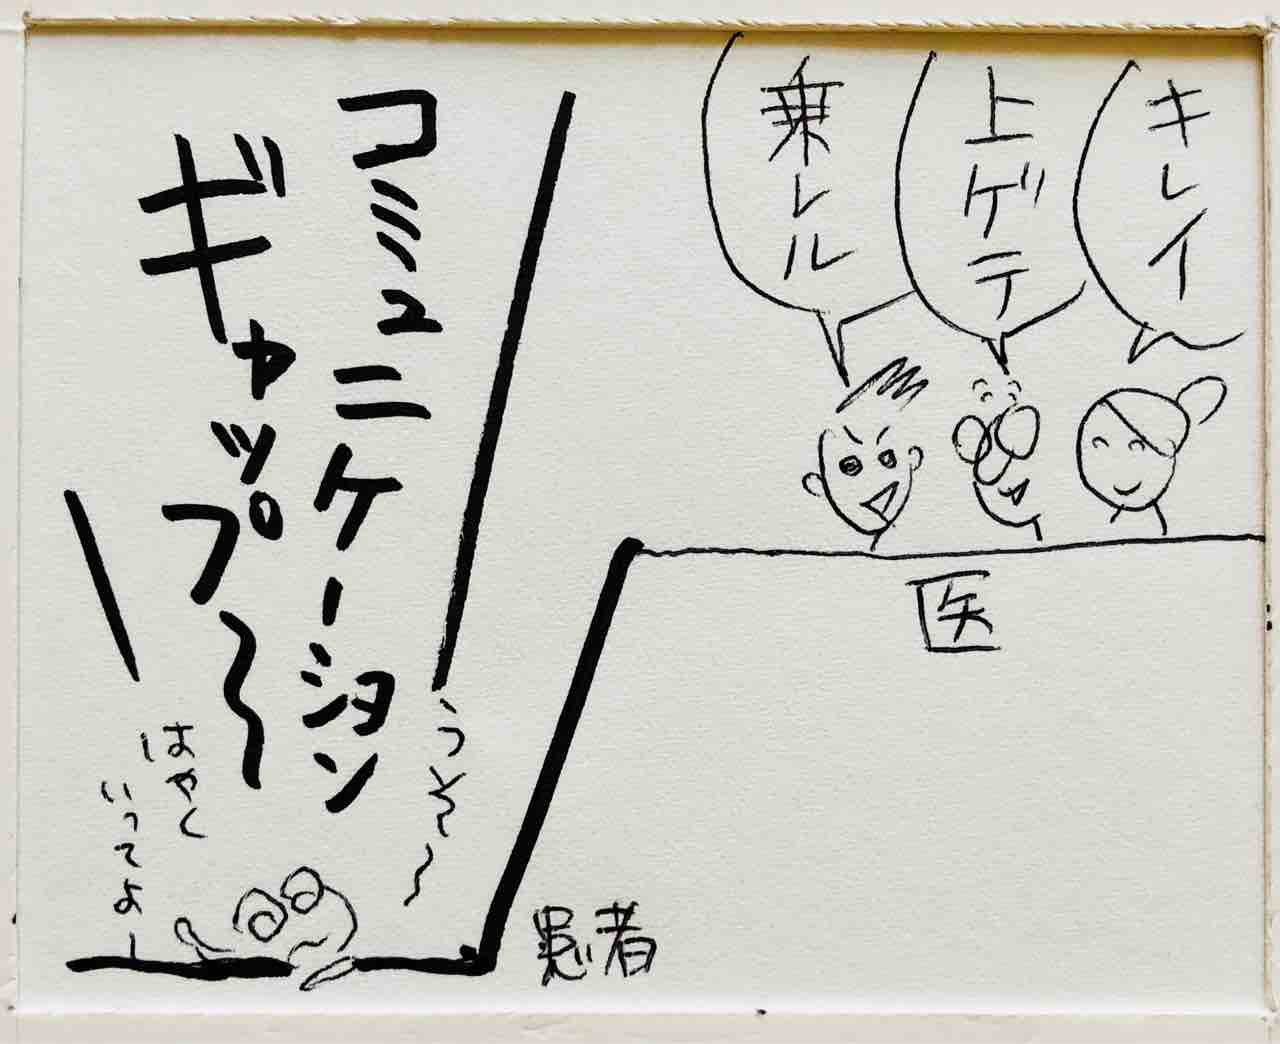 キレイ
上ゲテ
乗レル
医
コミュニケーション
ギャップ〜
うそ〜
はやく
いってよー
患者